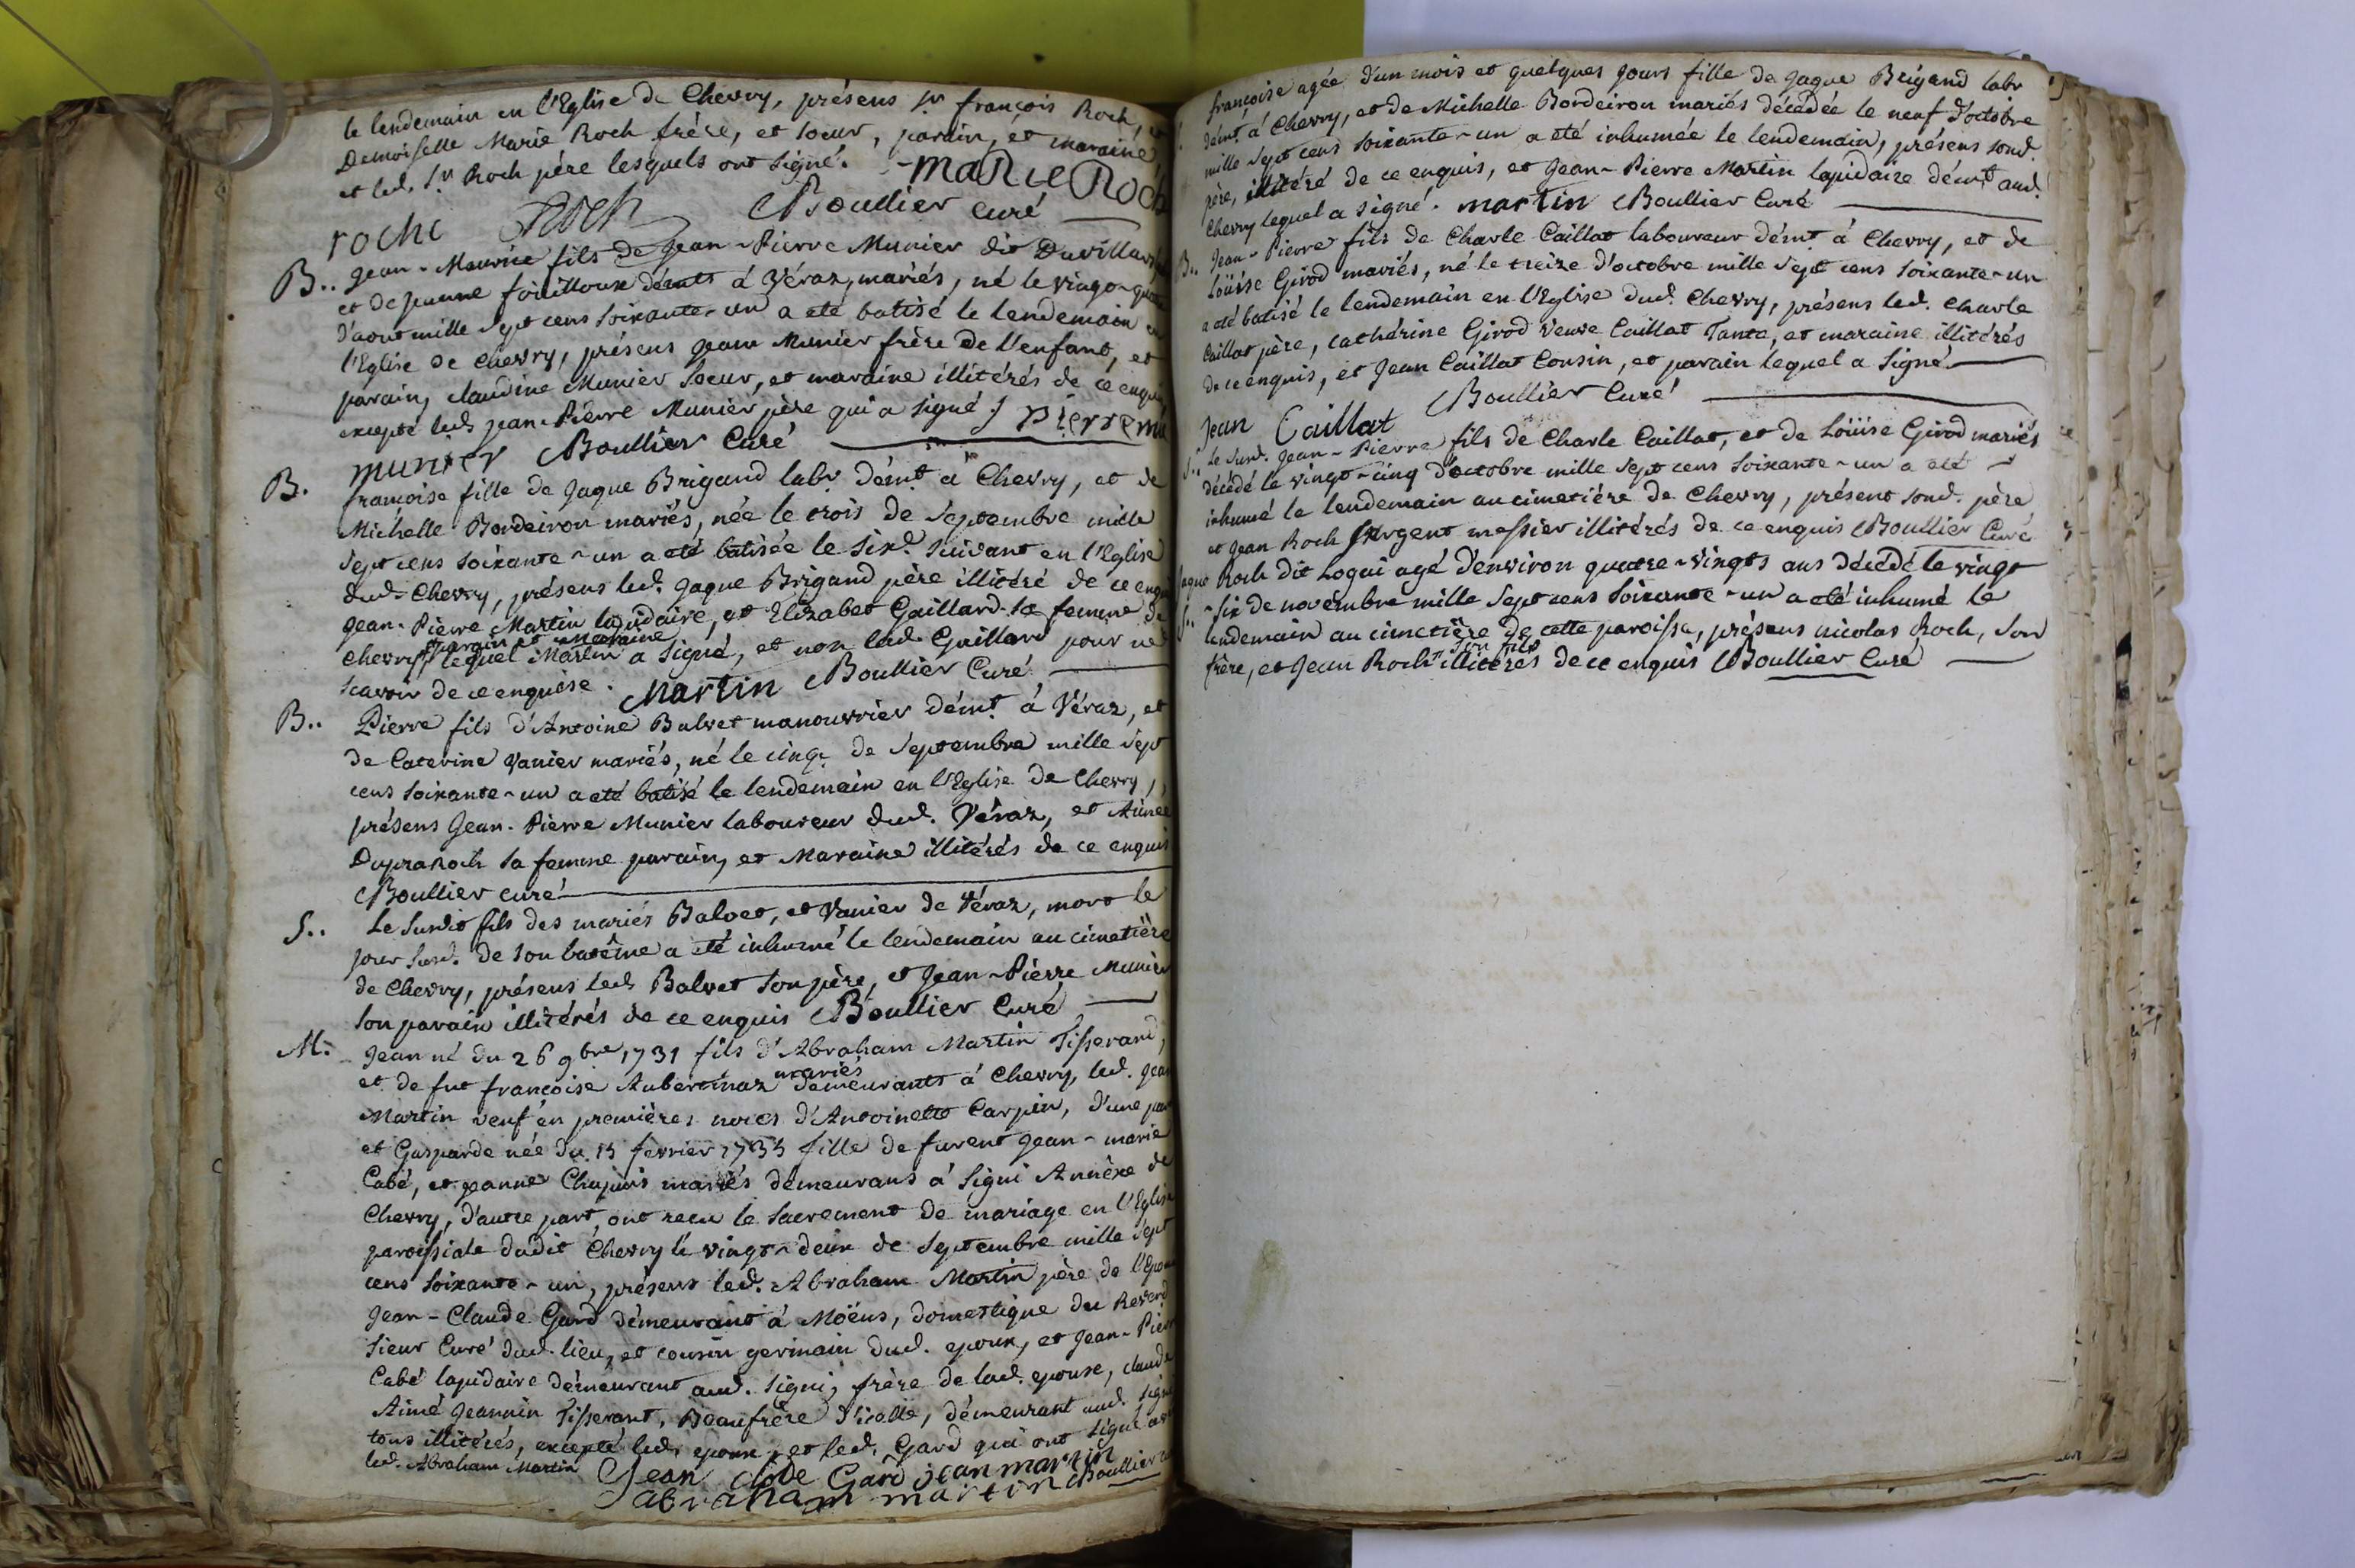 le lendemain en l'Eglise de Chevry, présens Sr françois Roch, et
Demoiselle Marie Roch frére, et soeur, parain, et maraine
et led. Sr Roch pére lesquels ont signé. Marie Roch
roche Roch Boullier curé
B.. Jean-Maurice fils de Jean-Pierre Munier dit Duvillard
et de Jeanne foüilloux démts à Véraz, mariés, né le vingt-quatre
d'aout mille sept cens soixante-un a eté batisé le lendemain en
l'Eglise de Chevry, présens Jean Munier frère de l'enfant, et
parain, claudine Munier soeur, et maraine illitérés de ce enquis
excepté led. Jean-Pierre Munier pére qui a signé / Pierre mu
munier Boullier Curé
B. francoise fille de Jaque Brigand labr démt à Chevry, et de
Michelle Bordeiron mariés, née le trois de Septembre mille
sept cens soixante-un a eté batisée le sixe suivant en l'Eglise
dud. Chevry, présens led. Jaque Brigand pére illitéré de ce enquis
Jean-Pierre Martin lapidaire, et Elizabet Gaillard sa femme de
Chevry parain et Maraine lequel Martin a signé, et non lad. Gaillard pour ne
scavoir de ce enquise. Martin Boullier Curé
B.. Pierre fils d'Antoine Balvet manouvrier démt à Véraz, et
de Caterine Vanier mariés, né le cinq de Septembre mille sept
cens soixante-un a eté batisé le lendemain en l'Eglise de Chevry,
présens Jean-Pierre Munier laboureur dud. Véraz, et Aimée
Dupraroch sa femme parain, et Maraine illitérés de ce enquis
Boullier curé
S.. Le susdit fils des mariés Balvet, et Vanier de Véraz, mort le
jour susd. de son batême a eté inhumé le lendemain au cimetière
de Chevry, présens led. Balvet son pére, et Jean-Pierre Munier
son parain illitérés de ce enquis Boullier Curé
M. Jean né du 26 9bre 1731 fils d'Abraham Martin Tisserand,
et de fut françoise Aubertinaz mariés demeurants à Chevry, led. Jean
Martin veuf en premières noces d'Antoinette Carpin, d'une part
et Gasparde née du 15 fevrier 1735 fille de furent Jean-marie
Cabé, et Jeanne Chapuis mariés demeurans à Signi Annèxe de
Chevry, d'autre part, ont recu le sacrement de mariage en l'Eglise
paroissiale dudit Chevry le vingt-deux de Septembre mille sept
cens soixante-un, présens led. Abraham Martin pére de l'Epoux
Jean-Claude Gard demeurant à Möens, domestique du Reverd
Sieur Curé dud. lieu, et cousin germain dud. epoux, et Jean-Pierre
Cabé lapidaire demeurant aud. Signi, frère de lad. epouse, claude
Aimé Jeannin Tisserant, Beaufrère d'icelle, demeurant aud. Signi
tous illitérés, excepté led. epoux, et led. Gard qui ont signé avec
led. Abraham Martin Jean clode Gard jean martin
abraham martin Boullier cu
françoise agée d'un mois et quelques jours fille de Jaque Brigand labr
démt à Chevry, et de Michelle Bordeiron mariés décédée le neuf d'octobre
mille sept cens soixante-un a eté inhumée le lendemain, présens sond.
pére, illitéré de ce enquis, et Jean-Pierre Martin lapidaire démt aud.
Chevry lequel a signé. martin Boullier Curé
B.. Jean-Pierre fils de Charle Caillat laboureur démt à Chevry, et de
Loüise Girod mariés, né le treize d'octobre mille sept cens soixante-un
a eté batisé le lendemain en l'Eglise dud. Chevry, présens led. Charle
Caillat pére, cathérine Girod veuve Caillat Tante, et maraine illitérés
de ce enquis, et Jean Caillat Cousin, et parain lequel a signé
Jean Caillat Boullier Curé
S.. Le susd. Jean-Pierre fils de Charle Caillat, et de Loüise Girod mariés
décédé le vingt-cinq d'octobre mille sept cens soixante-un a eté
inhumé le lendemain au cimetière de Chevry, présent sond. pére,
et Jean Roch Sergent messier illitérés de ce enquis Boullier Curé
Jaque Roch dit Loqui agé d'environ quatre-vingts ans décédé le vingt
S.. -six de novembre mille sept cens soixante-un a eté inhumé le
lendemain au cimetière de cette paroisse, présens nicolas Roch, son
frère, et Jean Roch son fils illitérés de ce enquis Boullier Curé